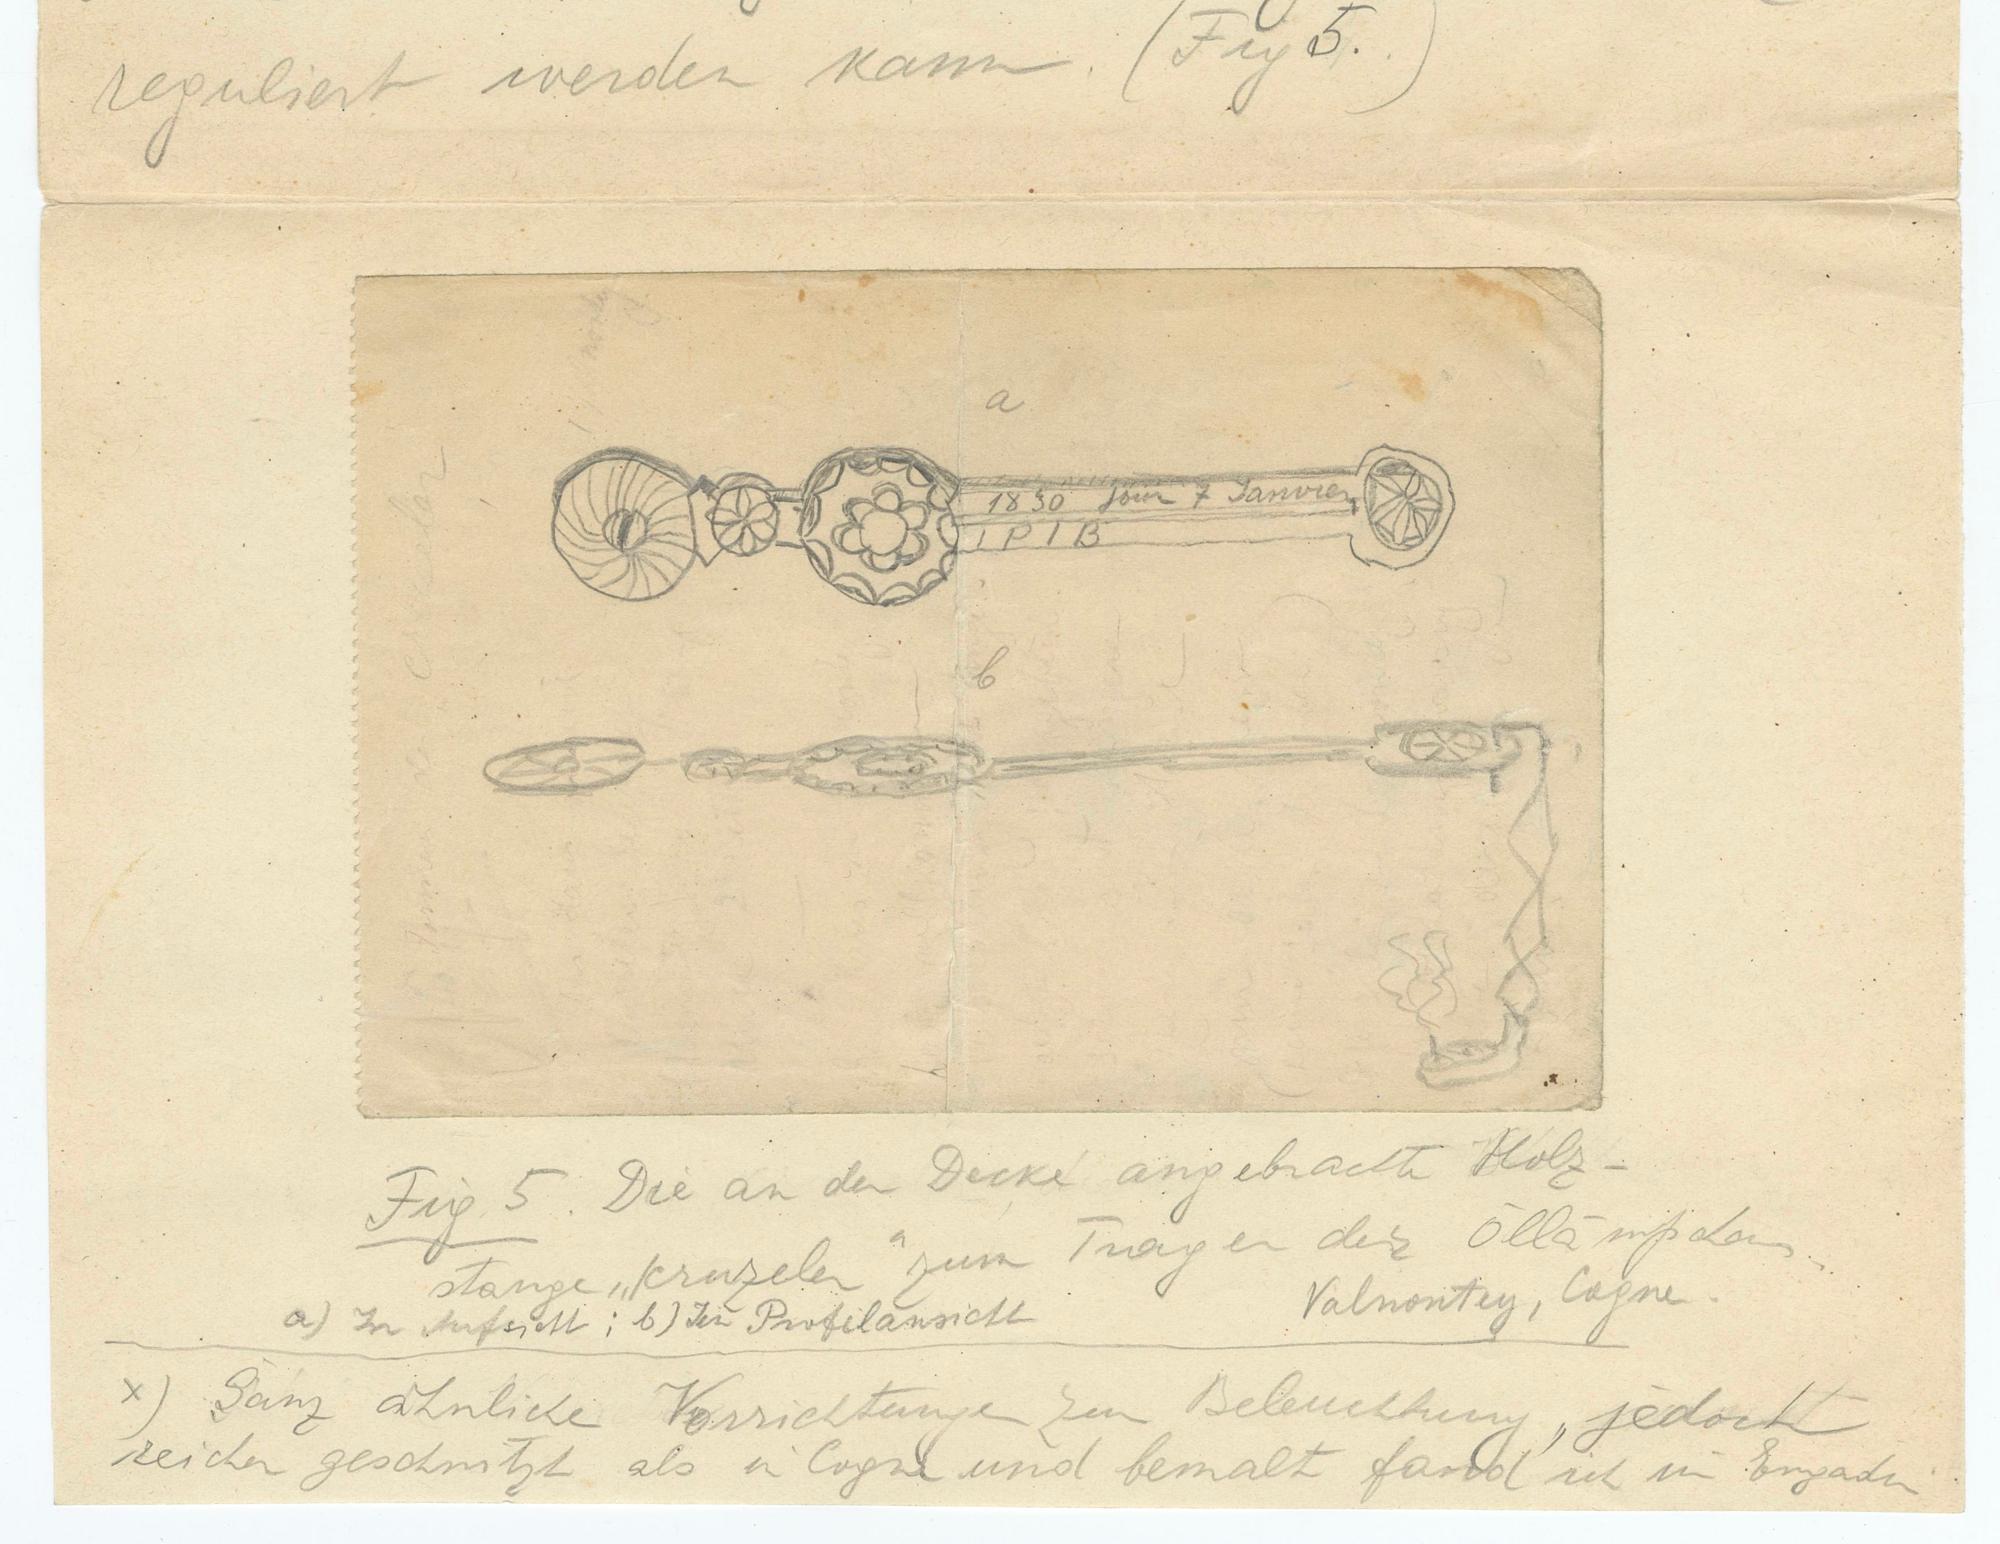 reguliert werden kann. (Fig 5.)
a
1830 Jour 7 Janvier
I P I B
b
Fig 5. Die an der Decke angebrachte Holz-
stange „Kruzeler“ zum Tragen der Öllämpchen.
Valnontey, Cogne.
a) In Aufsicht; b) In Profilansicht
x) Ganz ähnliche Vorrichtungen zur Beleuchtung, jedoch
reicher geschnitzt als in Cogne und bemalt fand ich im Engadin